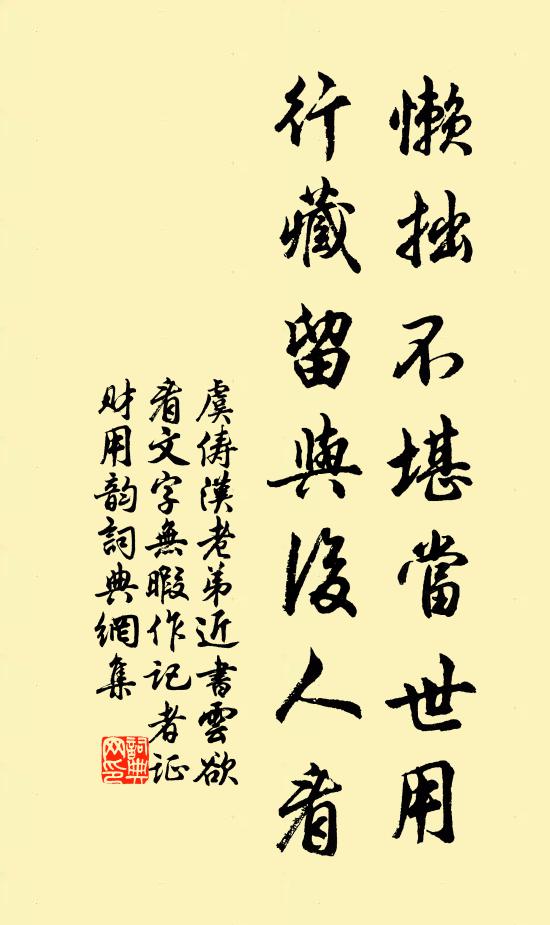 懒拙不堪當世用
行藏留與後人看
虞儔漢老弟近書雲欲
看文字無暇作記者証
財用韵詞典網集
詞典
网印